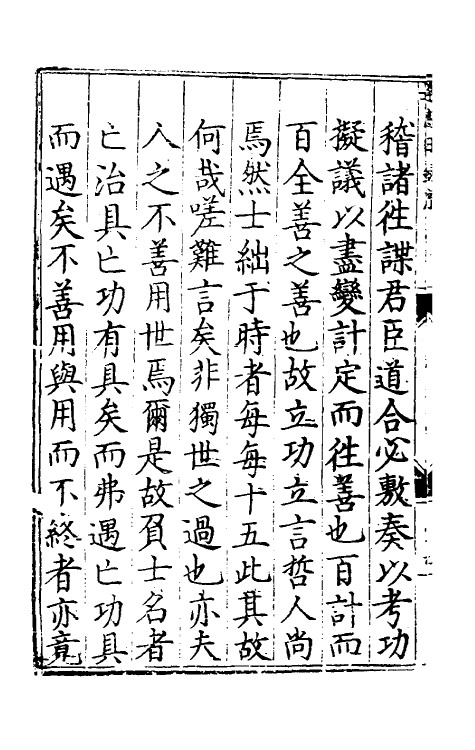 稽諸徃謀君臣道合必敷奏以考功
擬議以盡變計定而徃善也百計而
百全善之善也故立功立言哲人尚
焉然士絀于時者每每十五此其故
何哉嗟難言矣非獨世之過也亦夫
人之不善用世焉爾是故負士名者
亡治具亡功有具矣而弗遇亡功具
而遇矣不善用與用而不終者亦竟